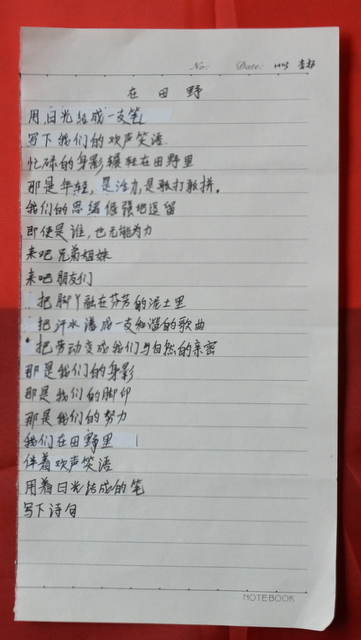 No: Date:
在田野
用日光结成一支笔
写下我们的欢声笑语
忙碌的身影辗转在田野里
那是年轻，是活力，是敢打敢拼。
我们的思绪倔强地逗留
即使是谁，也无能为力
来吧兄弟姐妹
来吧朋友们
把脚丫融在芬芳的泥土里
把汗水潘成一支和谐的歌曲
把劳动变成我们与自然的亲密
那是我们的身影
那是我们的脚印
那是我们的努力
我们在田野里
伴着欢声笑语
用着日光结成的笔
写下诗句
NOTEBOOK